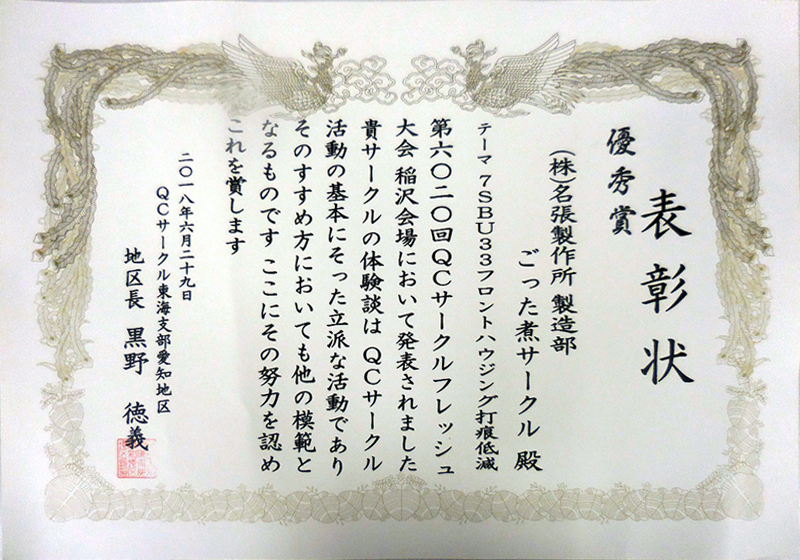 表彰状
優秀賞
(株)名張製作所 製造部
ごった煮サークル 殿
テーマ 7SBU33フロントハウジング打痕低減
第六〇二〇回QCサークルフレッシュ
大会 稲沢会場において発表されました
貴サークルの体験談は QCサークル
活動の基本にそった立派な活動であり
そのすすめ方においても他の模範と
なるものです ここにその努力を認め
これを賞します
二〇一八年六月二十九日
QCサークル東海支部愛知地区
地区長 黒野 徳義